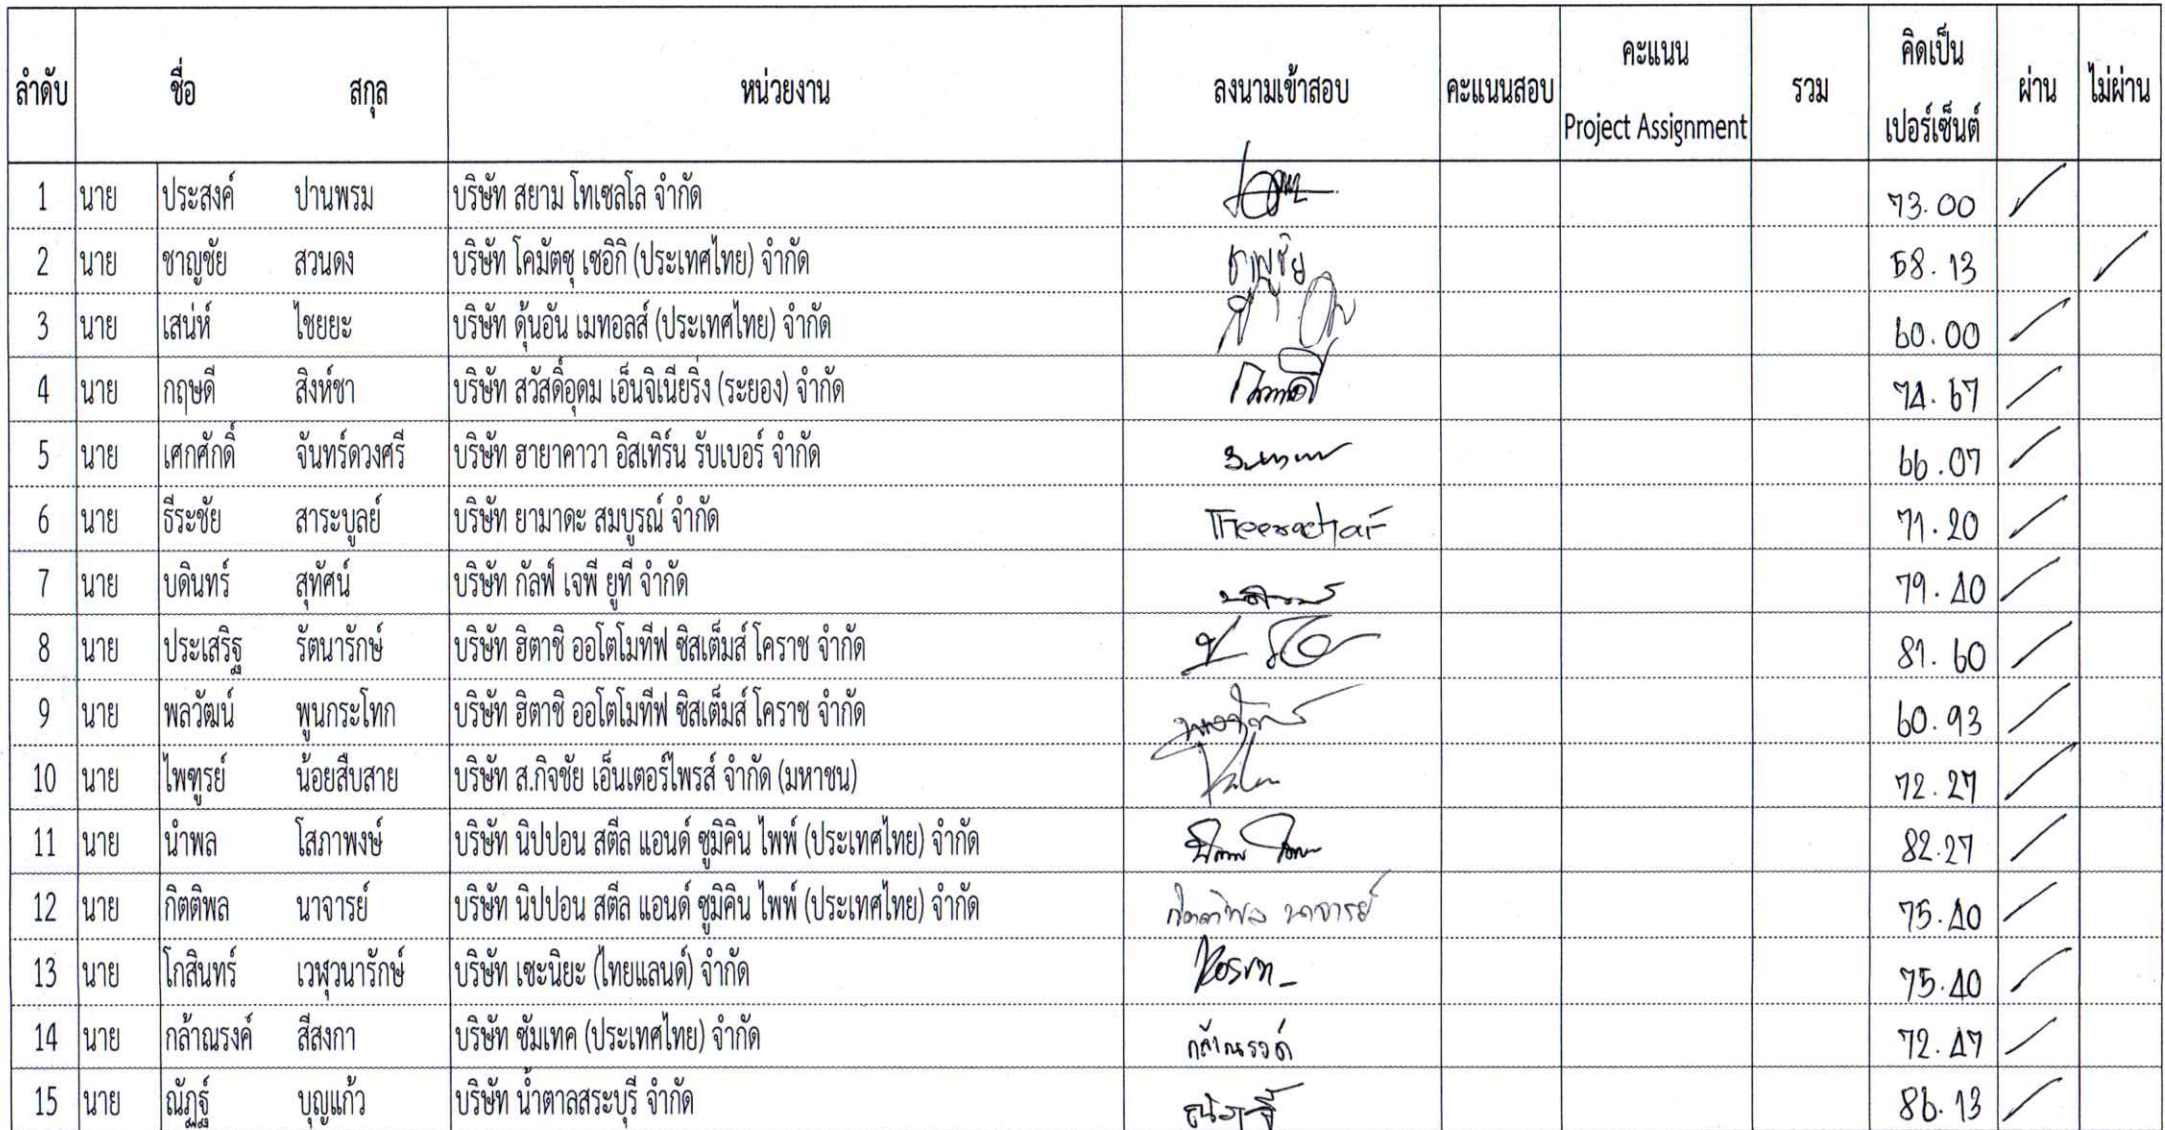 ลำดับ ชื่อ สกุล หน่วยงาน ลงนามเข้าสอบ คะแนนสอบ คะแนน Project Assignment รวม คิดเป็น เปอร์เซ็นต์ ผ่าน ไม่ผ่าน
1 นาย ประสงค์ ปานพรม บริษัท สยาม โทเซลโล จำกัด 73.00 /
2 นาย ชาญชัย สวนดง บริษัท โคมัตซุ เซอิกิ (ประเทศไทย) จำกัด ชาญชัย 58.13 /
3 นาย เสน่ห์ ไชยยะ บริษัท ดุ้นอัน เมทอลส์ (ประเทศไทย) จำกัด 60.00 /
4 นาย กฤษดี สิงห์ชา บริษัท สวัสดิ์อุดม เอ็นจิเนียริ่ง (ระยอง) จำกัด 74.67 /
5 นาย เศกศักดิ์ จันทร์ดวงศรี บริษัท ฮายาคาวา อิสเทิร์น รับเบอร์ จำกัด 66.07 /
6 นาย ธีระชัย สาระบูลย์ บริษัท ยามาดะ สมบูรณ์ จำกัด Theerachai 71.20 /
7 นาย บดินทร์ สุทัศน์ บริษัท กัลฟ์ เจพี ยูที จำกัด 79.40 /
8 นาย ประเสริฐ รัตนารักษ์ บริษัท ฮิตาชิ ออโตโมทีฟ ซิสเต็มส์ โคราช จำกัด 81.60 /
9 นาย พลวัฒน์ พูนกระโทก บริษัท ฮิตาชิ ออโตโมทีฟ ซิสเต็มส์ โคราช จำกัด 60.93 /
10 นาย ไพฑูรย์ น้อยสืบสาย บริษัท ส.กิจชัย เอ็นเตอร์ไพรส์ จำกัด (มหาชน) 72.27 /
11 นาย นำพล โสภาพงษ์ บริษัท นิปปอน สตีล แอนด์ ซูมิคิน ไพพ์ (ประเทศไทย) จำกัด 82.27 /
12 นาย กิตติพล นาจารย์ บริษัท นิปปอน สตีล แอนด์ ซูมิคิน ไพพ์ (ประเทศไทย) จำกัด กิตติพล นาจารย์ 75.40 /
13 นาย โกสินทร์ เวฬุวนารักษ์ บริษัท เซะนิยะ (ไทยแลนด์) จำกัด Kosin 75.40 /
14 นาย กล้าณรงค์ สีสงกา บริษัท ซัมเทค (ประเทศไทย) จำกัด กล้าณรงค์ 72.47 /
15 นาย ณัฏฐ์ บุญแก้ว บริษัท น้ำตาลสระบุรี จำกัด 86.13 /